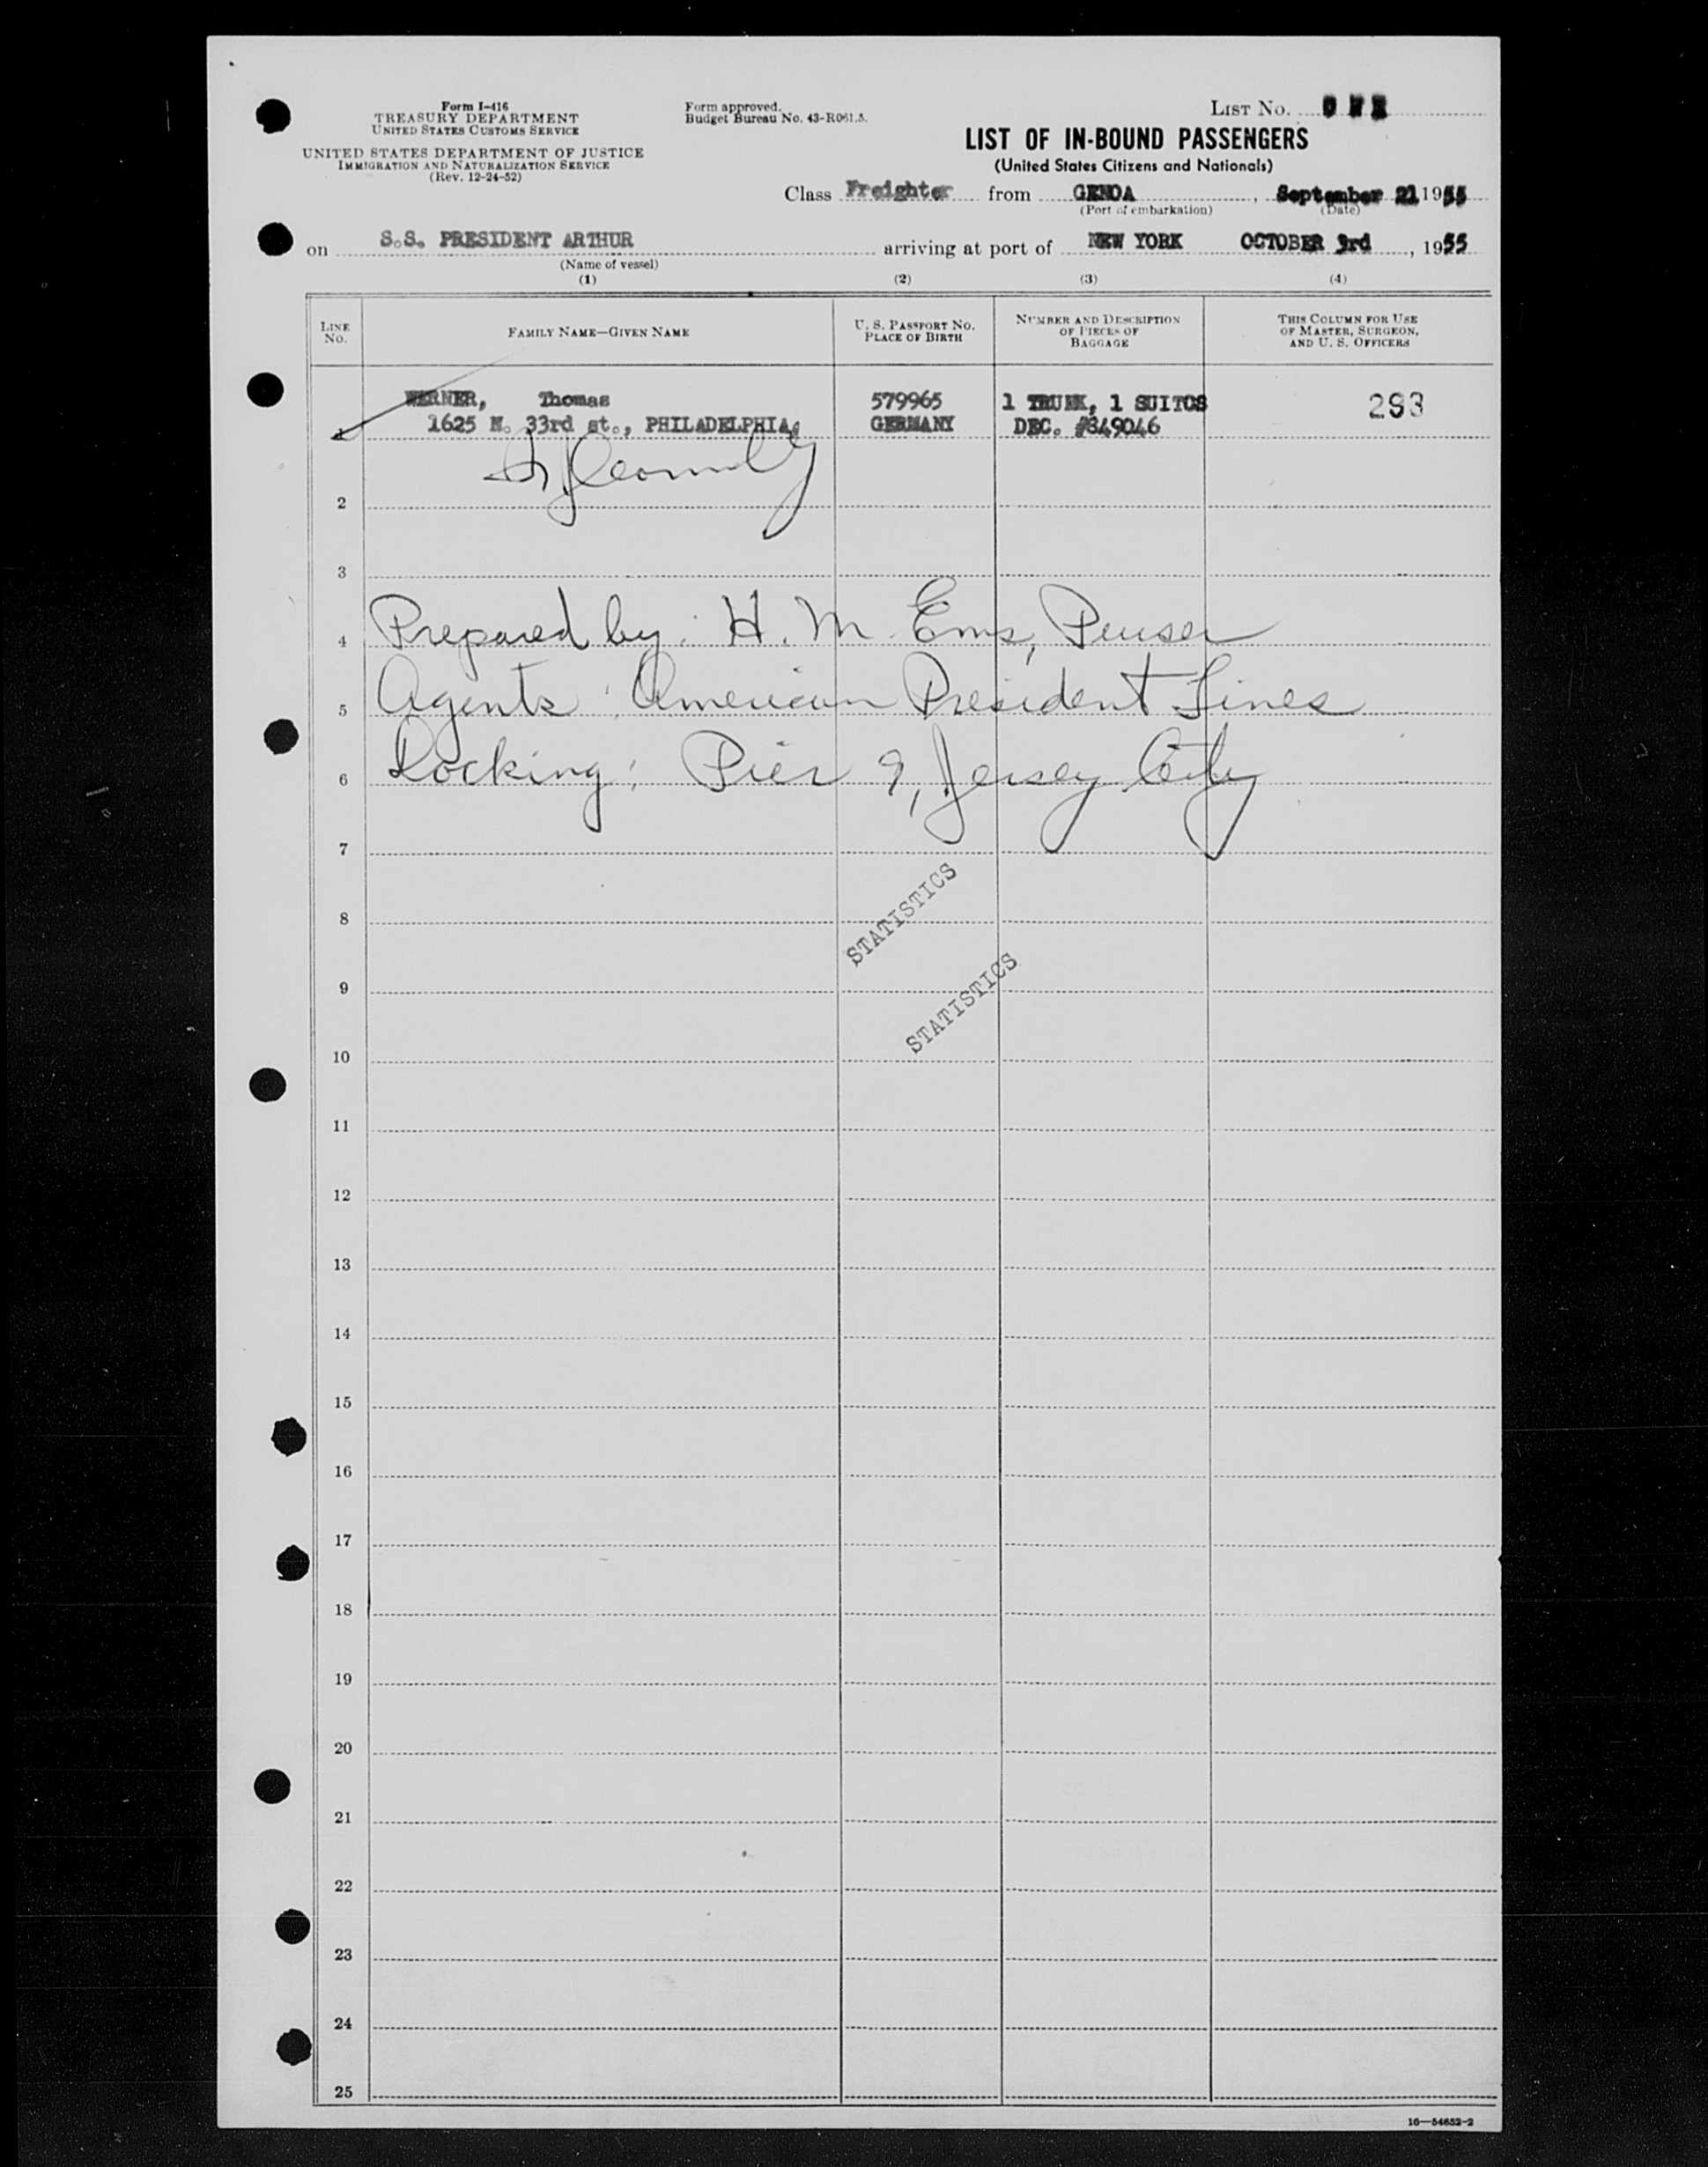 Form I-416
TREASURY DEPARTMENT
UNITED STATES CUSTOMS SERVICE
UNITED STATES DEPARTMENT OF JUSTICE
IMMIGRATION AND NATURALIZATION SERVICE
(Rev. 12-24-52)
Form approved.
Budget Bureau No. 43-R061.5.
LIST NO. ONE
LIST OF IN-BOUND PASSENGERS
(United States Citizens and Nationals)
Class Freighter from GENOA, September 21 1955
(Port of embarkation) (Date)
on S.S. PRESIDENT ARTHUR arriving at port of NEW YORK OCTOBER 3rd, 1955
(Name of vessel)
(1) (2) (3) (4)
LINE NO.
FAMILY NAME—GIVEN NAME
U. S. PASSPORT NO.
PLACE OF BIRTH
NUMBER AND DESCRIPTION
OF PIECES OF
BAGGAGE
THIS COLUMN FOR USE
OF MASTER, SURGEON,
AND U. S. OFFICERS
WERNER, Thomas 579965 1 TRUNK, 1 SUITCS 293
1 1625 N. 33rd st., PHILADELPHIA, GERMANY DEC. #849046
2
3
4 Prepared by: H. M. Ems, Purser
5 Agents: American President Lines
6 Docking: Pier 9, Jersey City
7
STATISTICS
8
9
STATISTICS
10
11
12
13
14
15
16
17
18
19
20
21
22
23
24
25
16—54652-2